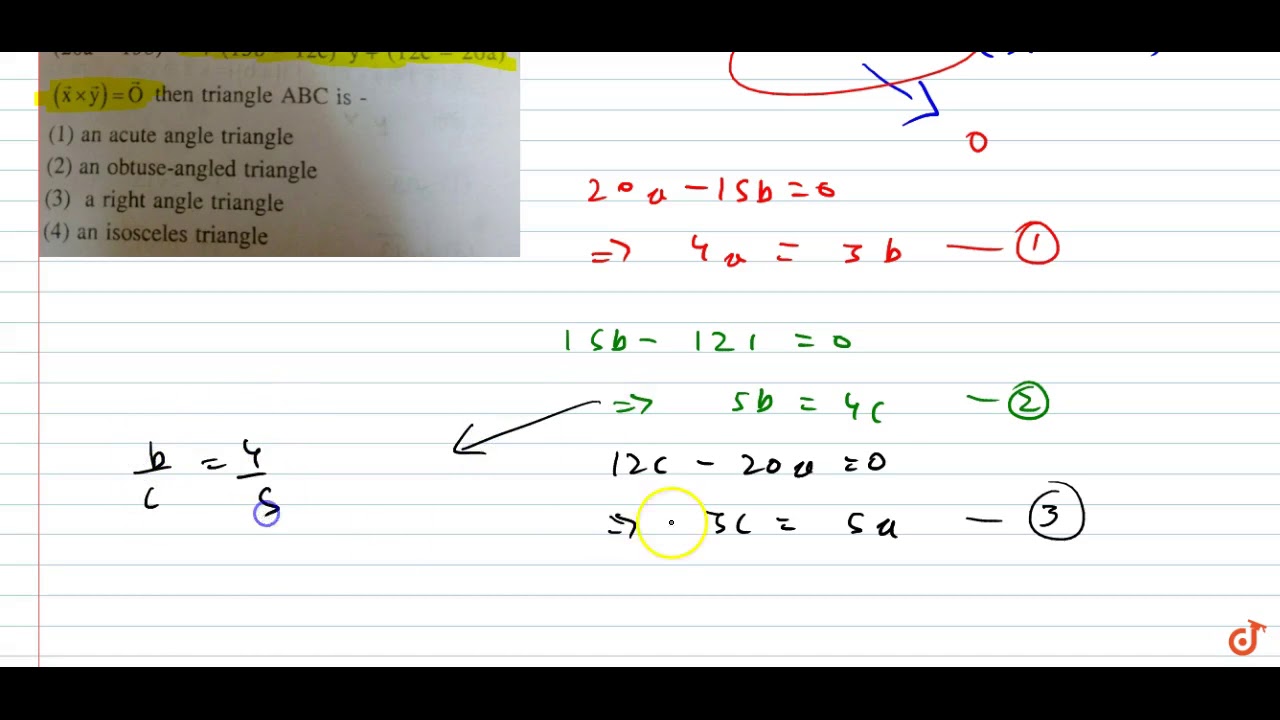 (x⃗ × y⃗) = O⃗ then triangle ABC is -
(1) an acute angle triangle
(2) an obtuse-angled triangle
(3) a right angle triangle
(4) an isosceles triangle
0
20a - 15b = 0
=> 4a = 3b — ①
15b - 12c = 0
=> 5b = 4c — ②
b/c = 4/5
12c - 20a = 0
=> 3c = 5a — ③